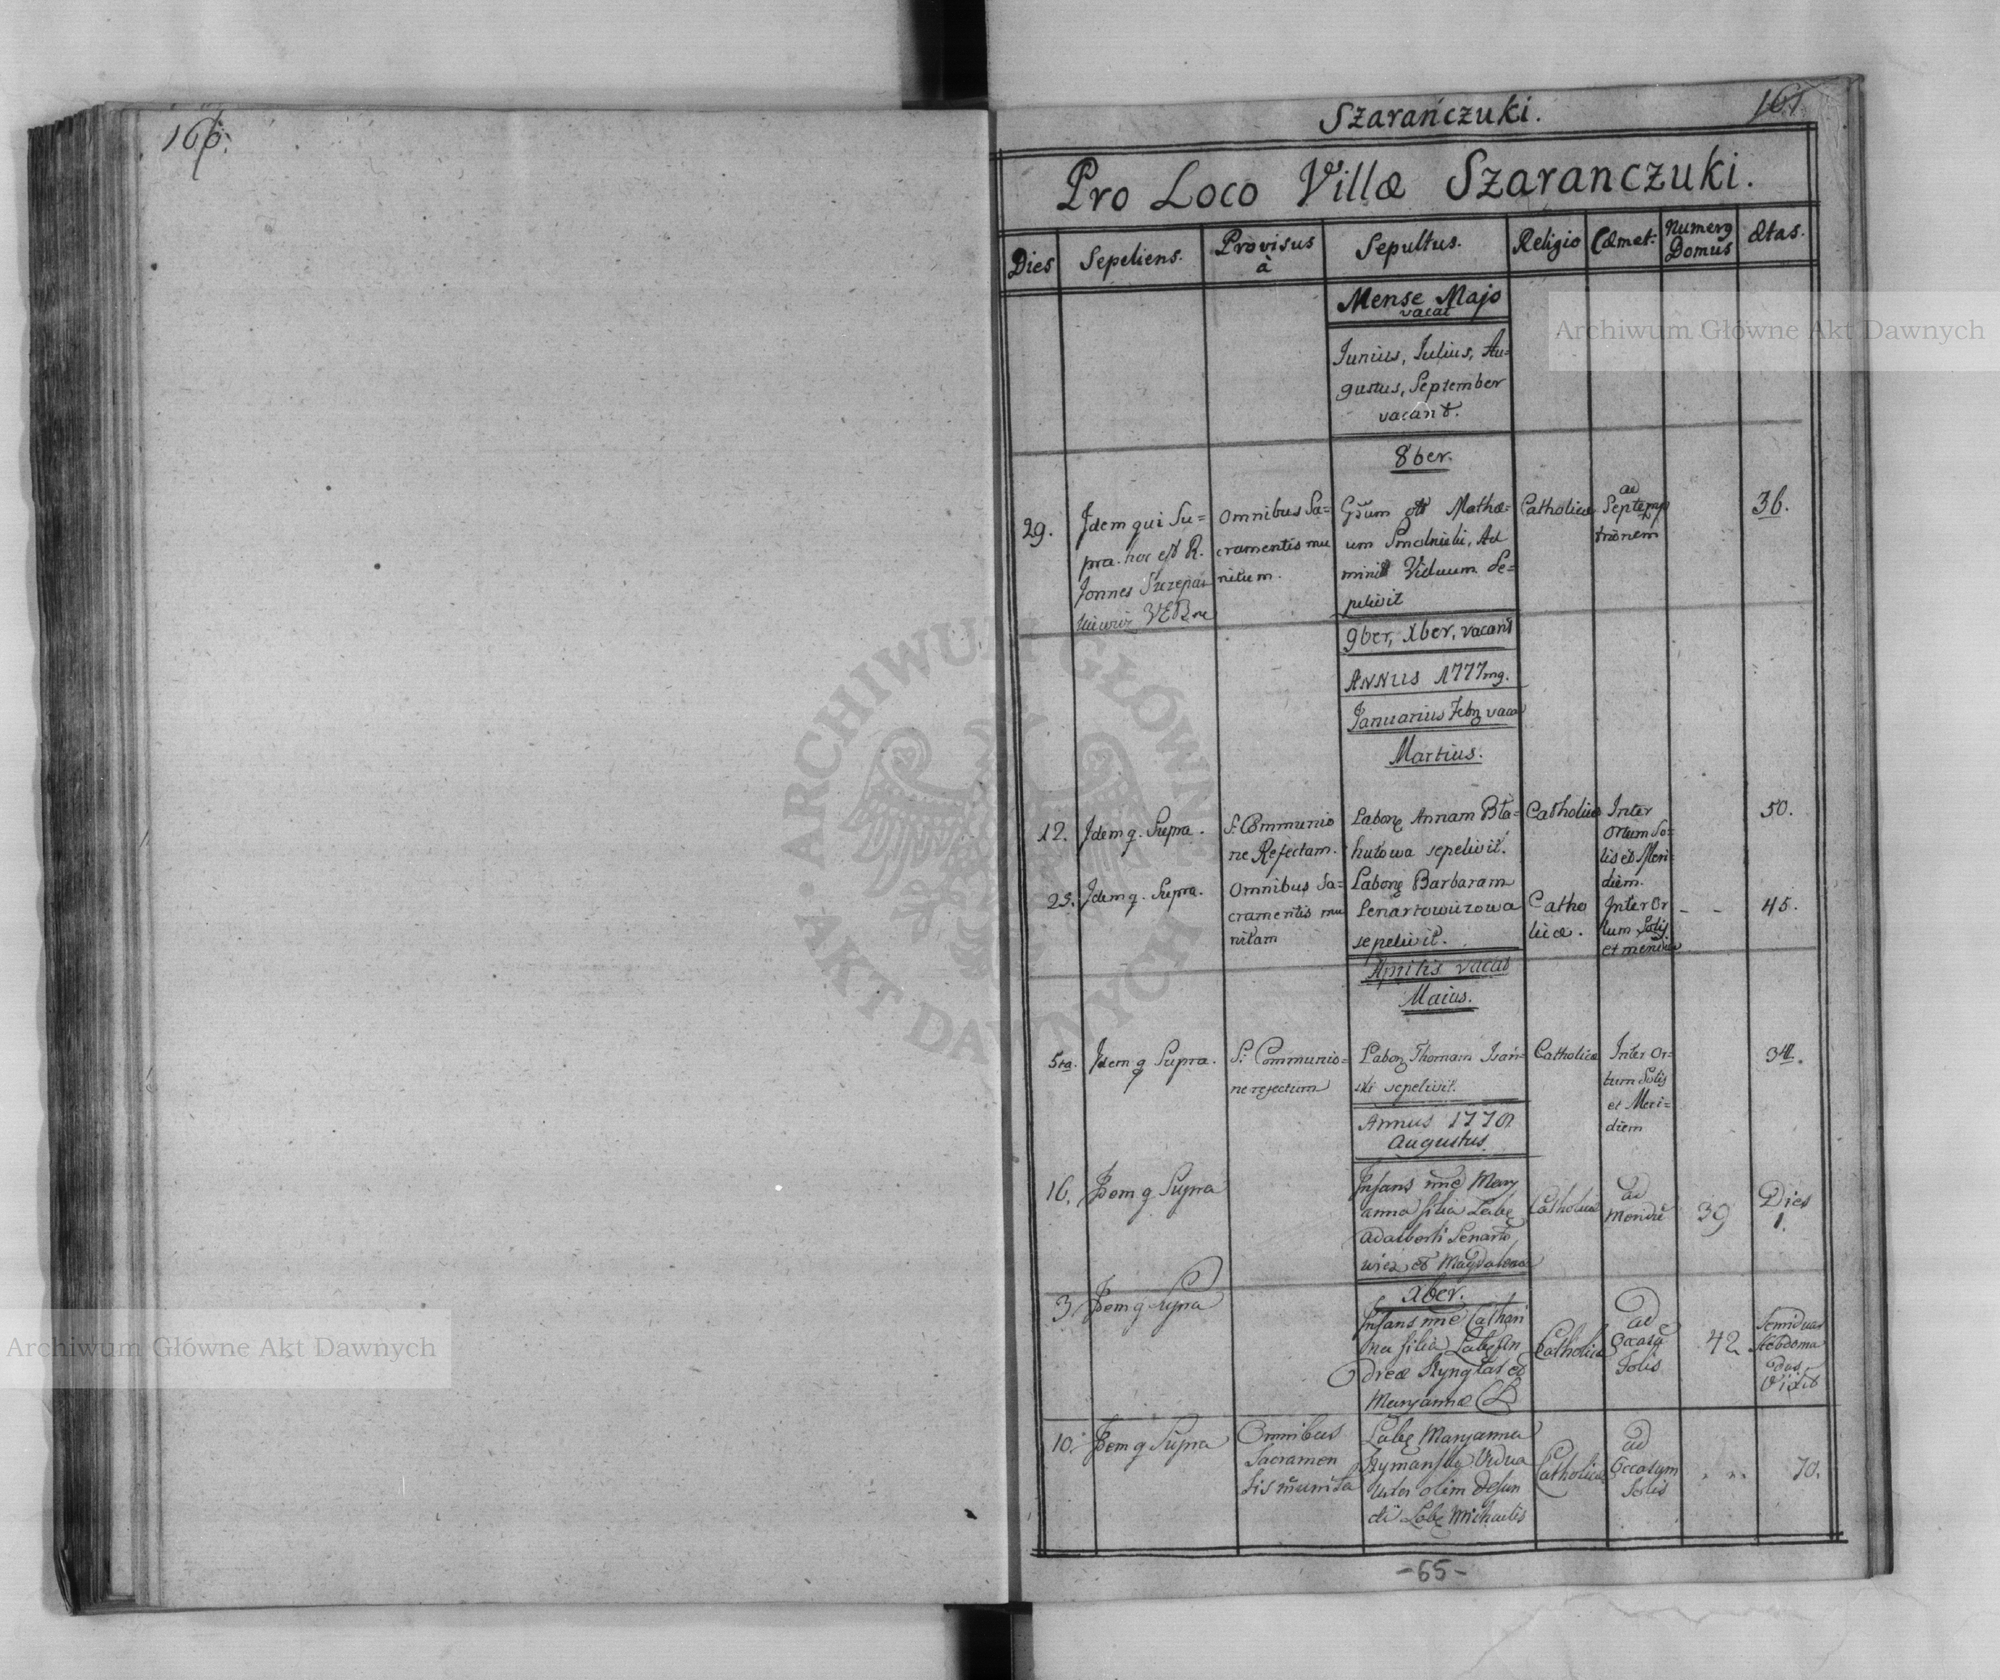 166.
Szarańczuki.
161
Pro Loco Villæ Szaranczuki.
Dies
Sepeliens.
Provisus
à
Sepultus.
Religio
Cæmet:
Numerg
Domûs
Ætas.
Mense Majo
vacat
Junius, Julius, Au=
gustus, September
vacant.
8ber.
29.
Jdem qui Su=
pra. hoc est R.
Jonnes Szczepan
kiewicz
Omnibus Sa=
cramentis mu
nitum.
Gsum Mathæ=
um Smolnicki, Ad
minis Viduum Se=
pelivit
Catholicæ
ad
Septemp
trionem
36.
9ber, Xber, vacant
ANNUS 1777mg.
Januarius Febr vaca
Martius.
12.
Jdem q. Supra.
S. Communio
ne Refectam.
Laborę Annam Bła=
hutowa sepelivit.
Catholicæ
Inter
Ortum So=
lis et Meri=
diem.
50.
25.
Jdem q. Supra.
Omnibus Sa=
cramentis mu
nitam
Laborę Barbaram
Lenartowiczowa
sepelivit.
Catho
licæ.
Inter Or
tum Solis
et meridie
- -
45.
Aprilis vacat
Maius.
5ta.
Jdem q Supra.
S: Communio=
ne refectum
Laborę Thomam Isań=
ski sepelivit.
Catholicæ
Inter Or=
tum Solis
et Meri=
diem
34.
Annus 1778
Augustus.
16.
Jdem q Supra
Infans nñe Mary
anna filia Labę
Adalberti Lenarto
wicz et Magdalena
Catholicæ
ad
Meridiē
39
Dies
1.
Xber.
3
Jdem q Supra
Infans nñe Cathari
na filia Labę An
dreæ et
Maryannæ
Catholicæ
ad
Occasũ
Solis
42
Semiduas
Hebdoma
das
Vixit
10.
Jdem q Supra
Omnibus
Sacramen
tis munita
Labę Maryanna
Vidua
olim Defun
cti Labę Michaelis
Catholicæ
ad
Occasum
Solis
70.
-65-
Archiwum Główne Akt Dawnych
Archiwum Główne Akt Dawnych
ARCHIWUM GŁÓWNE
AKT DAWNYCH